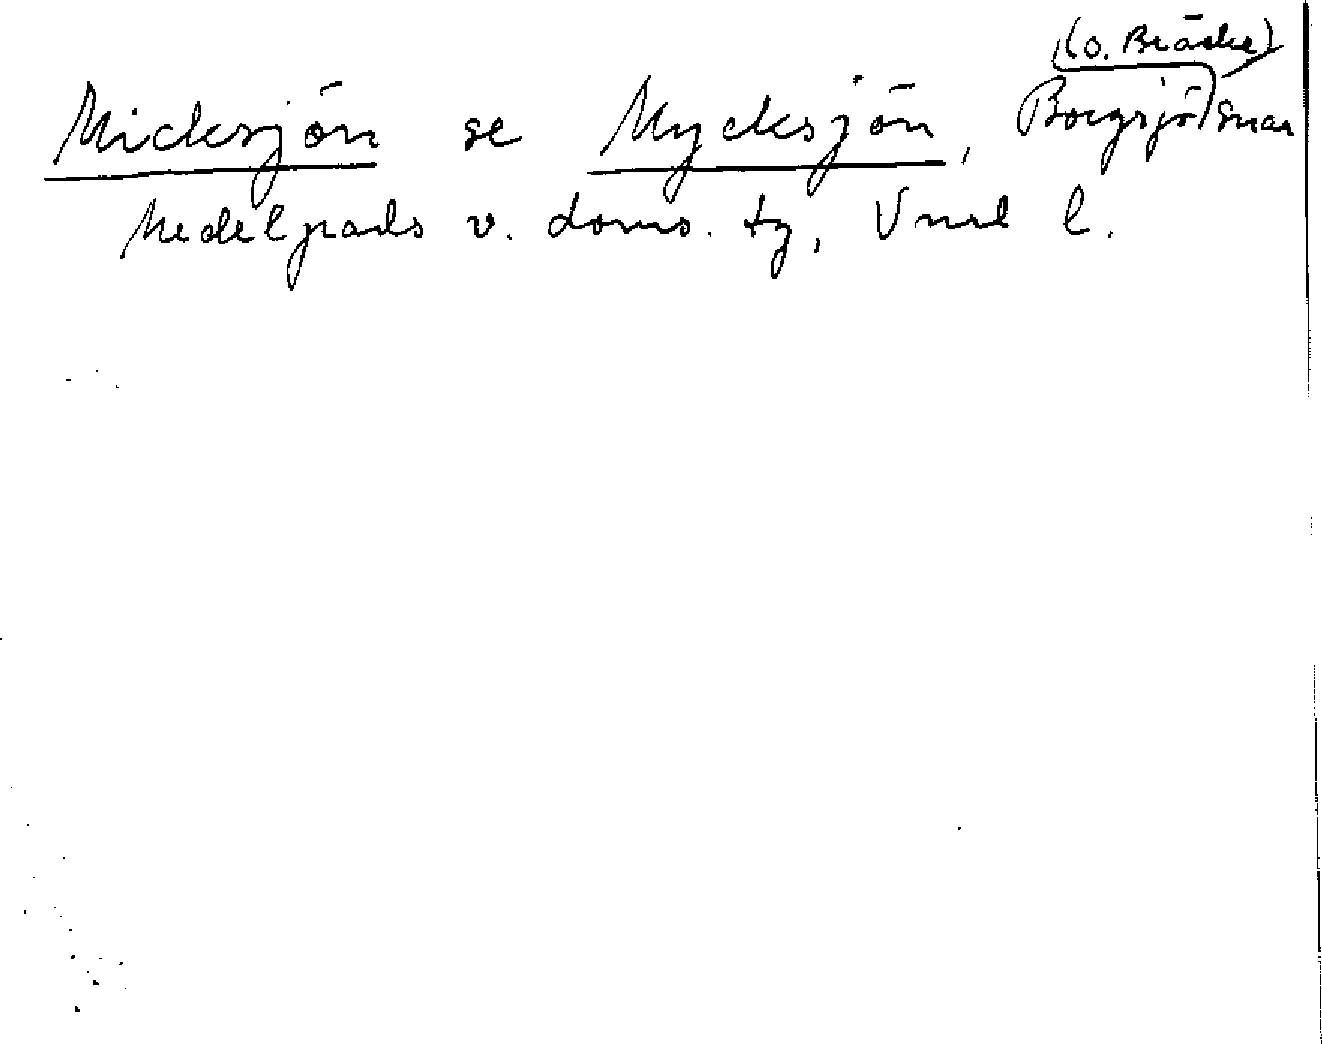 (o. Bräcke)
Micksjön se Mycksjön, Borgsjö snar
Medelpads v. doms. tg, Vnrl l.